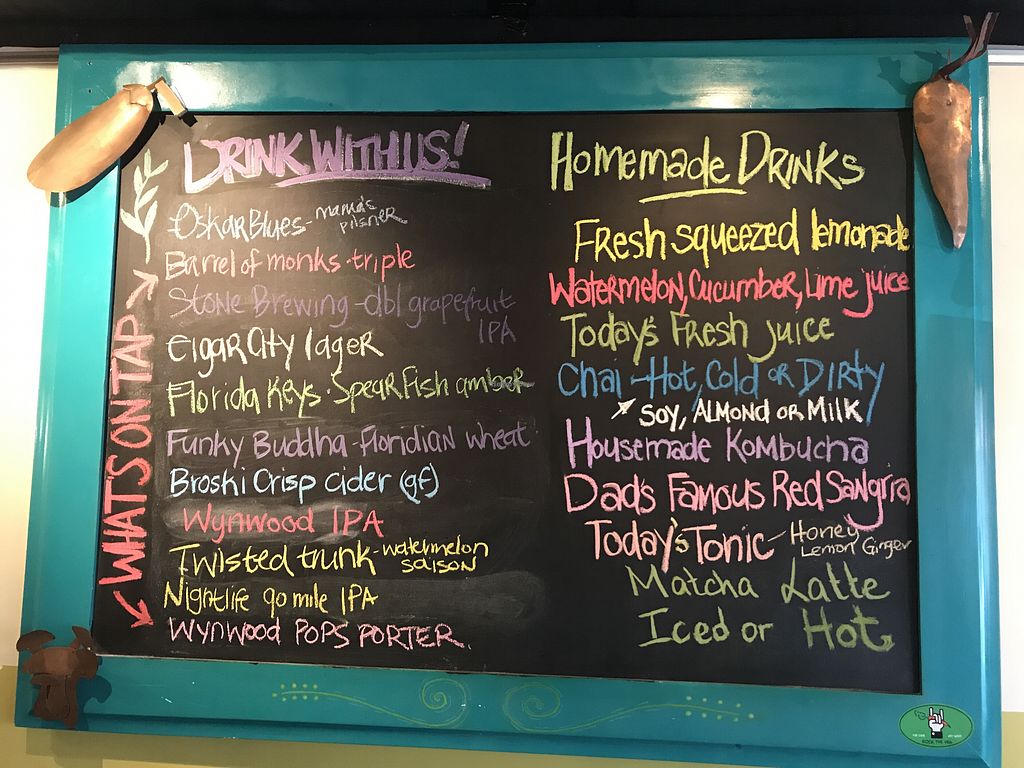 DRINK WITH US!
OskarBlues - mama's
pilsner
Barrel of monks - triple
Stone Brewing - dbl grapefruit
IPA
Cigar City lager
Florida Keys - SpearFish amber
Funky Buddha - Floridian wheat
Broski Crisp cider (gf)
Wynwood IPA
Twisted trunk - watermelon
saison
Nightlife 90 mile IPA
Wynwood POPS PORTER
WHAT'S ON TAP
Homemade DRINKS
Fresh squeezed lemonade
Watermelon, Cucumber, Lime juice
Today's Fresh juice
Chai - Hot, Cold or Dirty
Soy, Almond or Milk
Housemade Kombucha
Dad's Famous Red Sangria
Today's Tonic - Honey
Lemon Ginger
Matcha Latte
Iced or Hot